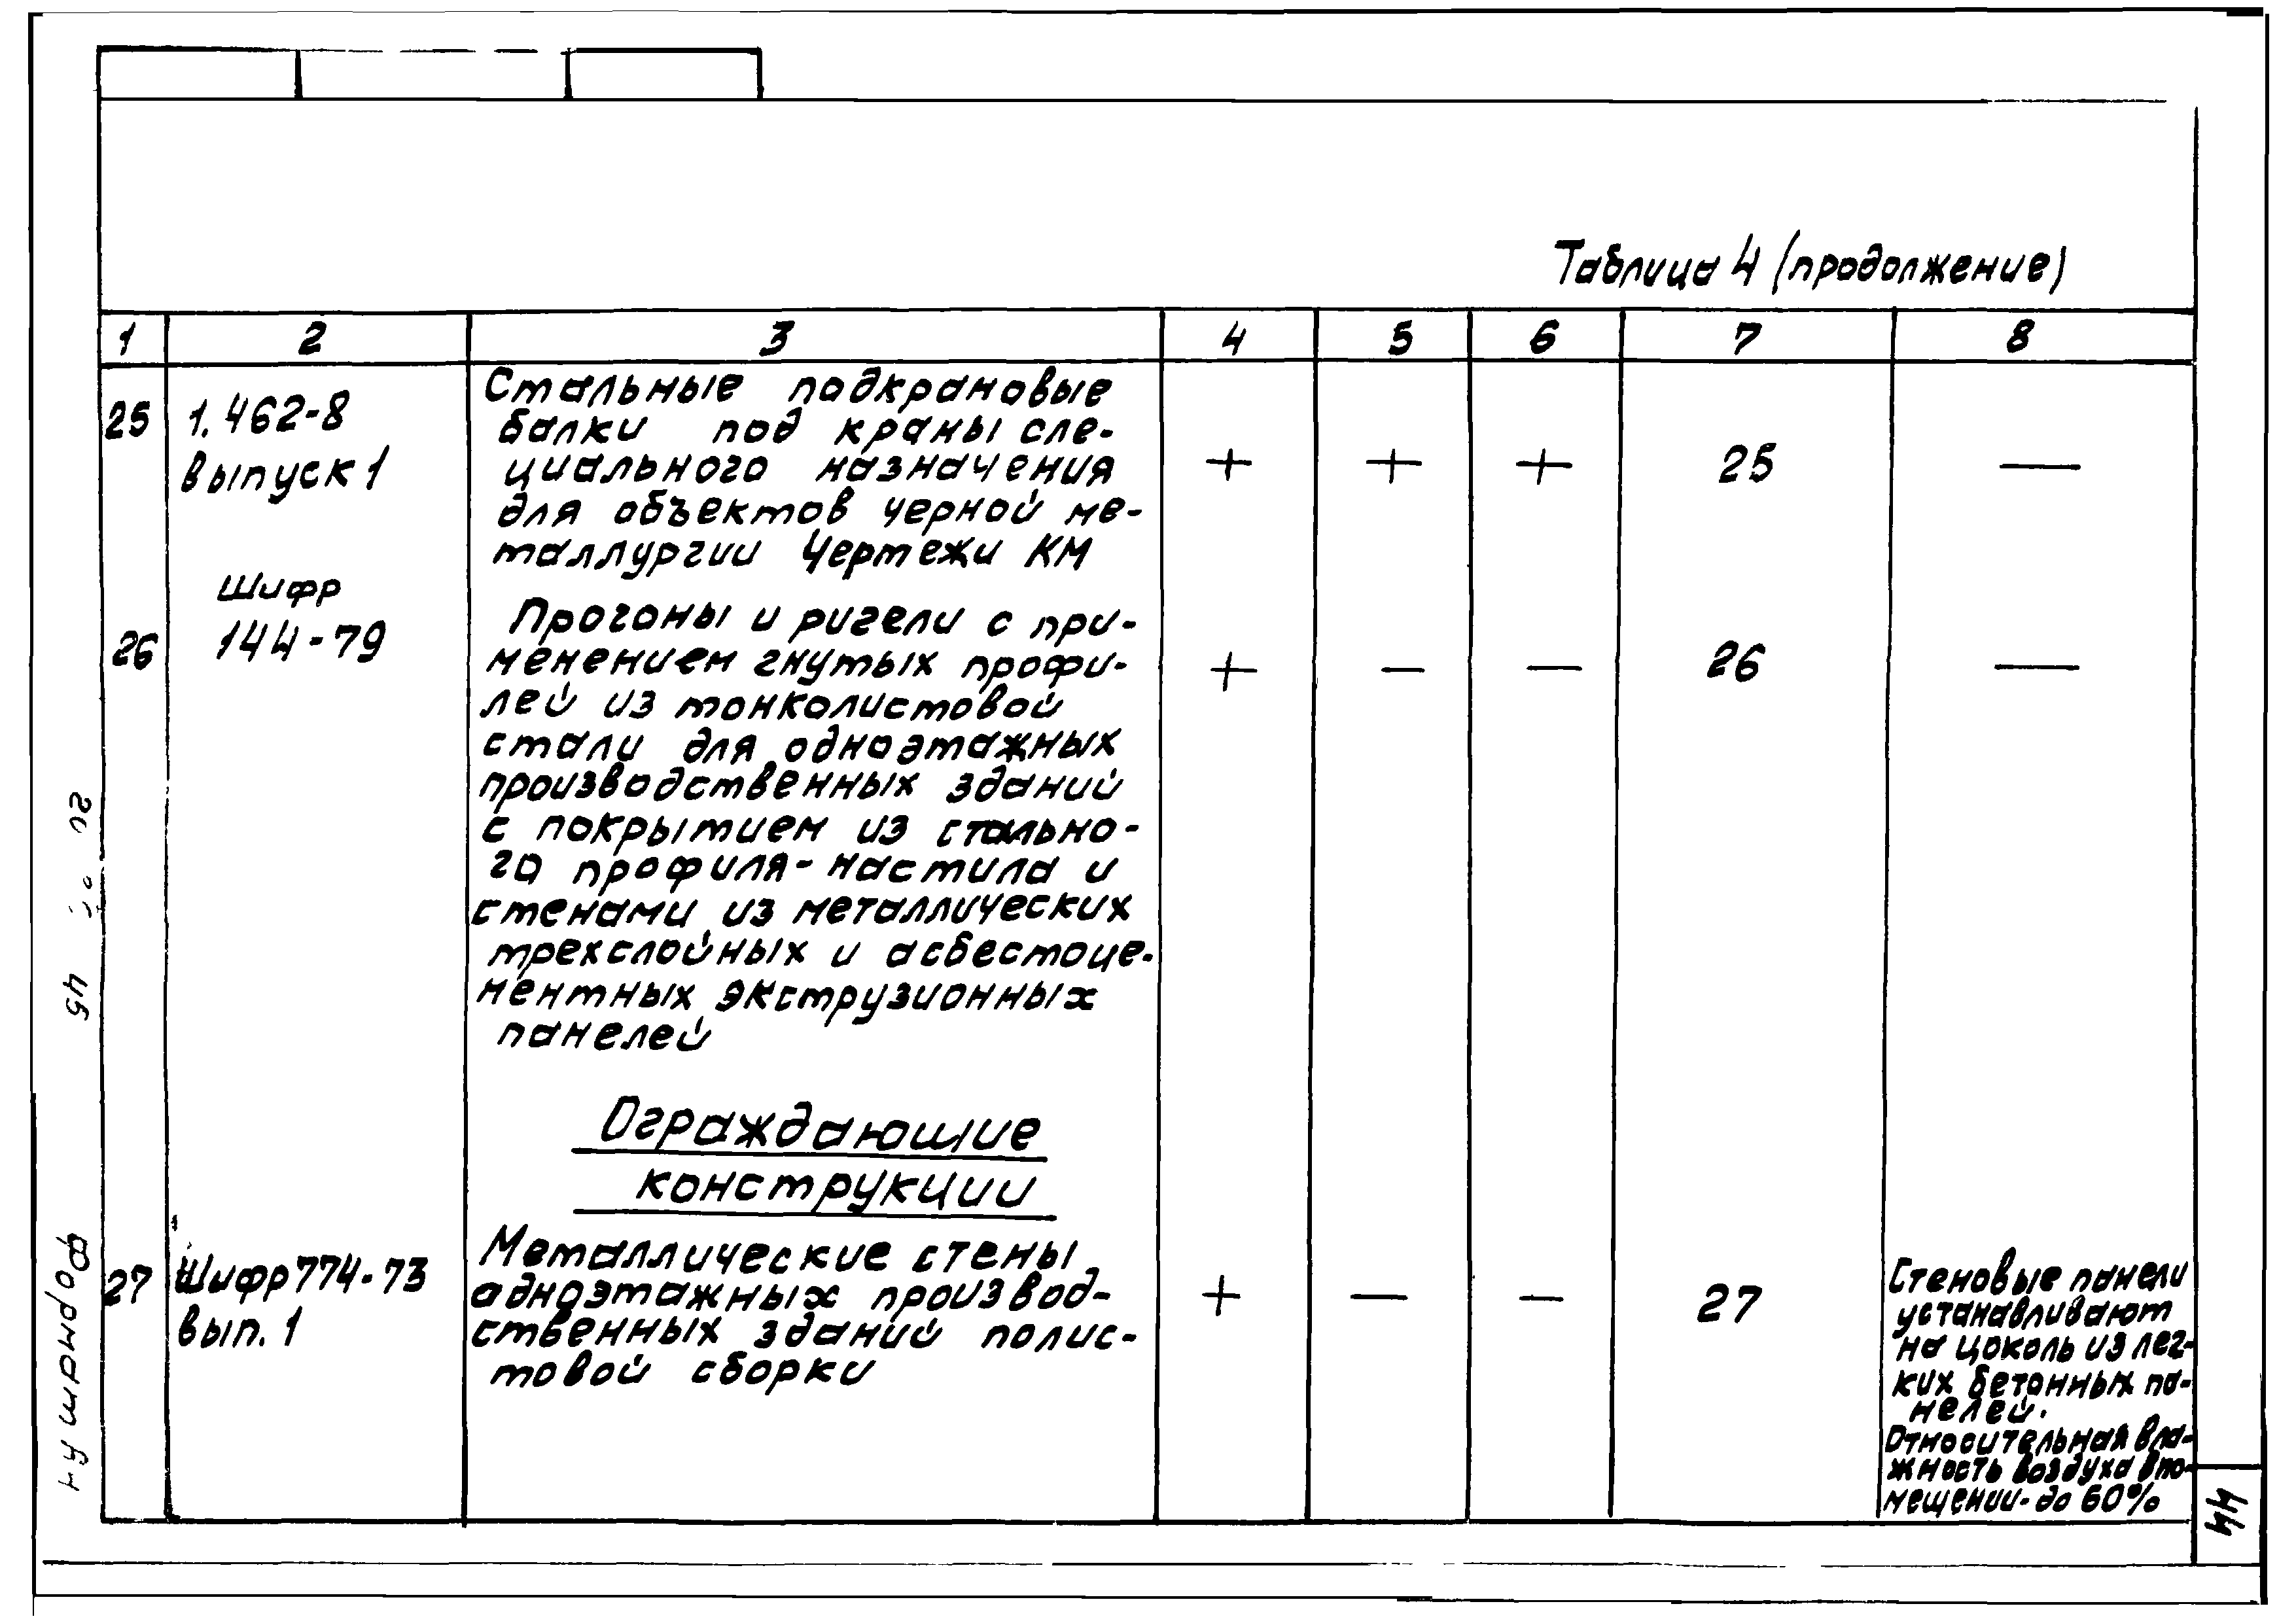 Таблица 4 (продолжение)
1 2 3 4 5 6 7 8
25 1.462-8 выпуск 1
Стальные подкрановые
балки под краны спе-
циального назначения
для объектов черной ме-
таллургии Чертежи КМ
+ + + 25 —
26 Шифр 144-79
Прогоны и ригели с при-
менением гнутых профи-
лей из тонколистовой
стали для одноэтажных
производственных зданий
с покрытием из стально-
го профиля-настила и
стенами из металлических
трехслойных и асбестоце-
ментных экструзионных
панелей
+ — — 26 —
Ограждающие
конструкции
27 Шифр 774-73
вып. 1
Металлические стены
одноэтажных производ-
ственных зданий полис-
товой сборки
+ — — 27
Стеновые панели
устанавливают
на цоколь из лег-
ких бетонных па-
нелей.
Относительная вла-
жность воздуха в по-
мещении - до 60%
44
Формат А4
45